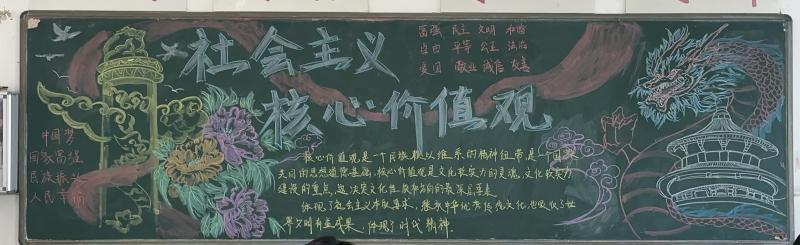 社会主义
核心价值观
富强 民主 文明 和谐
自由 平等 公正 法治
爱国 敬业 诚信 友善
中国梦
国家富强
民族振兴
人民幸福
核心价值观是一个民族赖以维系的精神纽带,是一个国家
共同的思想道德基础,核心价值观是文化软实力的灵魂,文化软实力
建设的重点,这决定文化性质和方向的最深层要素
体现了社会主义本质要求,继承中华优秀传统文化,也吸收了世
界文明有益成果,体现了时代精神.